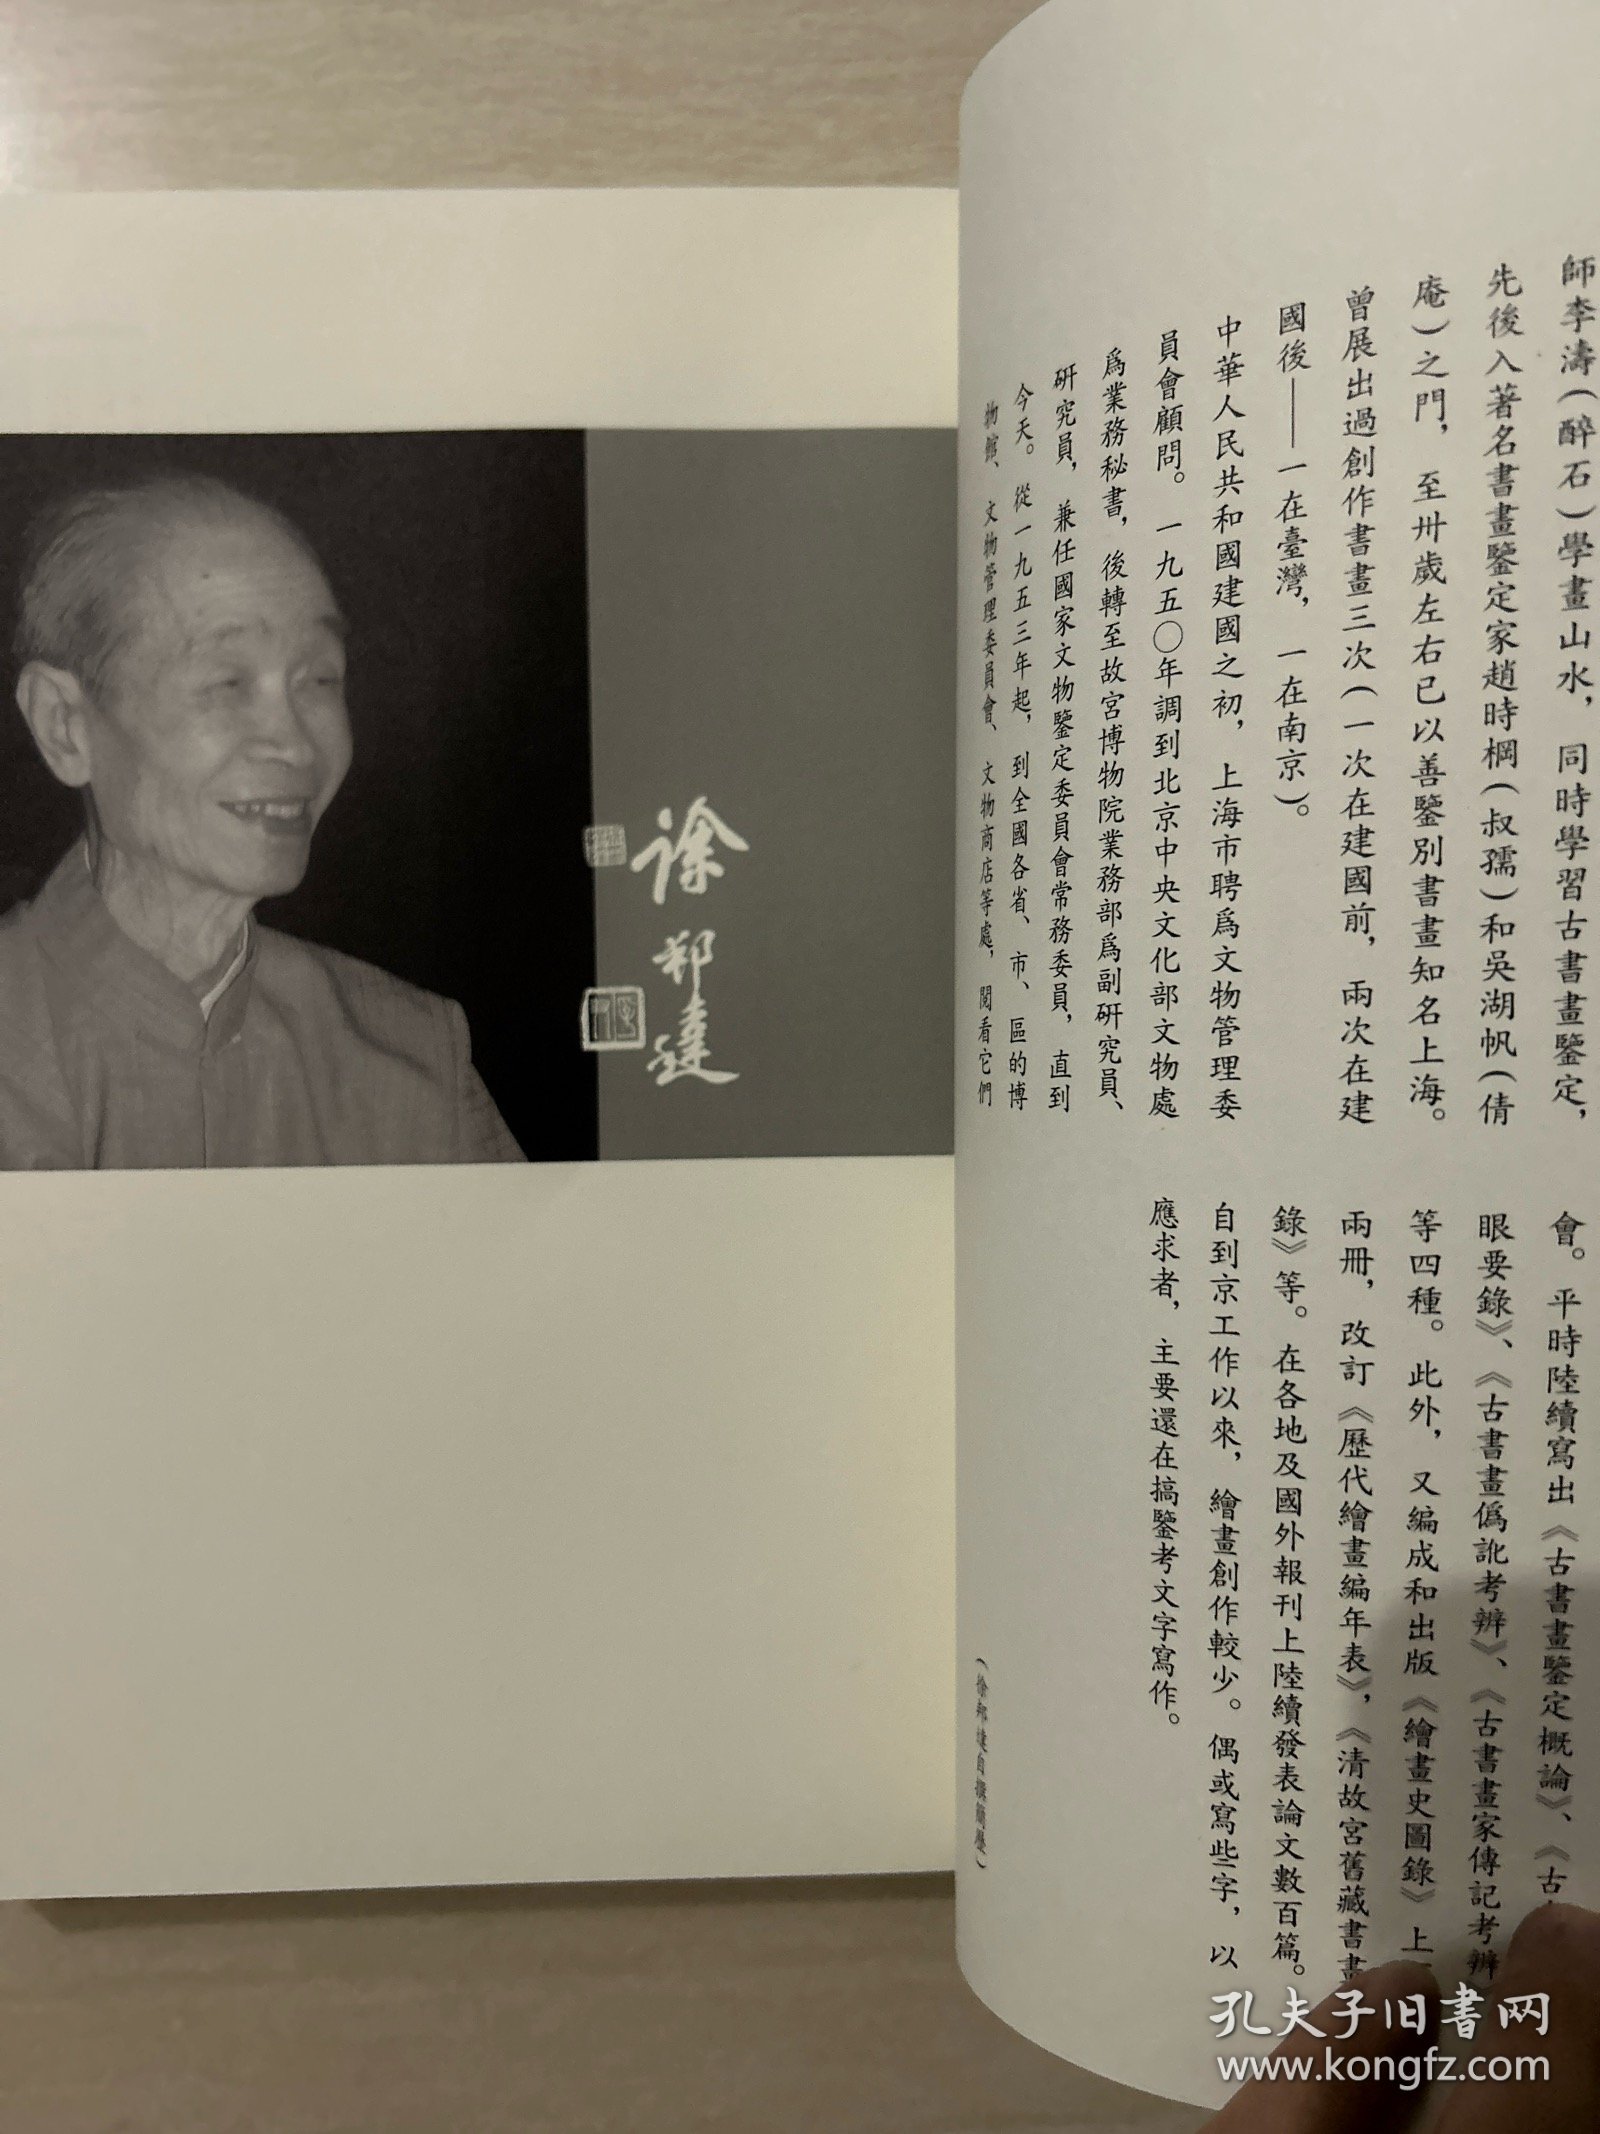 師李濤（醉石）學畫山水，同時學習古書畫鑒定，
先後入著名書畫鑒定家趙時棡（叔孺）和吳湖帆（倩
庵）之門，至卅歲左右已以善鑒別書畫知名上海。
曾展出過創作書畫三次（一次在建國前，兩次在建
國後——一在臺灣，一在南京）。
中華人民共和國建國之初，上海市聘爲文物管理委
員會顧問。一九五〇年調到北京中央文化部文物處
爲業務秘書，後轉至故宮博物院業務部爲副研究員、
研究員，兼任國家文物鑒定委員會常務委員，直到
今天。從一九五三年起，到全國各省、市、區的博
物館、文物管理委員會、文物商店等處，閱看它們
會。平時陸續寫出《古書畫鑒定概論》、《古
眼要錄》、《古書畫僞訛考辨》、《古書畫家傳記考辨
等四種。此外，又編成和出版《繪畫史圖錄》上
兩冊，改訂《歷代繪畫編年表》，《清故宮舊藏書畫
錄》等。在各地及國外報刊上陸續發表論文數百篇。
自到京工作以來，繪畫創作較少。偶或寫些字，以
應求者，主要還在搞鑒考文字寫作。
（徐邦達自撰簡歷）
徐邦達
孔夫子旧书网
www.kongfz.com